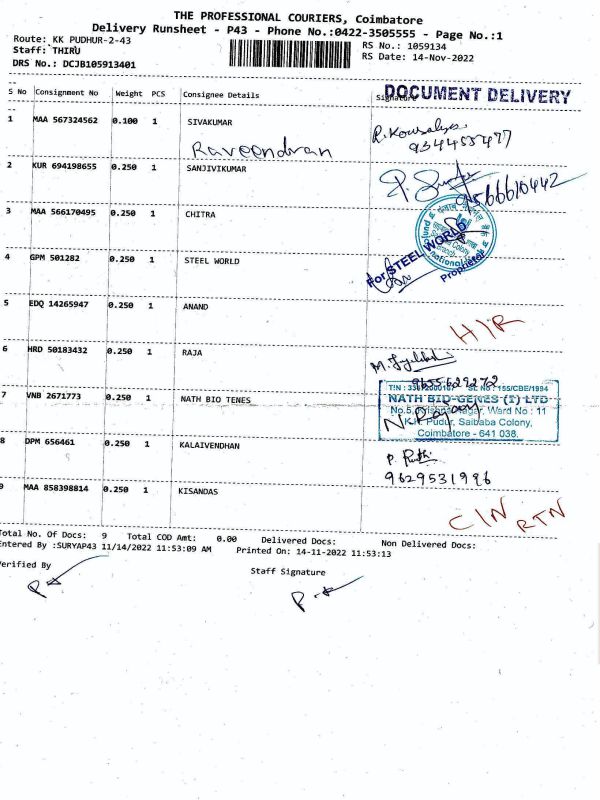 THE PROFESSIONAL COURIERS, Coimbatore
Delivery Runsheet - P43 - Phone No.:0422-3505555 - Page No.:1
Route: KK PUDHUR-2-43
RS No.: 1059134
Staff: THIRU
RS Date: 14-Nov-2022
DRS No.: DCJB105913401
S No Consignment No Weight PCS Consignee Details Signature
DOCUMENT DELIVERY
1 MAA 567324562 0.100 1 SIVAKUMAR
Raveendran
2 KUR 694198655 0.250 1 SANJIVIKUMAR
9566610442
3 MAA 566170495 0.250 1 CHITRA
4 GPM 501282 0.250 1 STEEL WORLD
For STEEL WORLD
Proprietor
5 EDQ 14265947 0.250 1 ANAND
H/R
6 HRD 50183432 0.250 1 RAJA
9655629272
7 VNB 2671773 0.250 1 NATH BIO TENES
NATH BIO-GENES (I) LTD
No.5, Krishna Nagar, Ward No : 11
K.K. Pudur, Saibaba Colony,
Coimbatore - 641 038.
8 DPM 656461 0.250 1 KALAIVENDHAN
9629531996
9 MAA 858398814 0.250 1 KISANDAS
C/N RTN
Total No. Of Docs: 9 Total COD Amt: 0.00 Delivered Docs: Non Delivered Docs:
Entered By :SURYAP43 11/14/2022 11:53:09 AM Printed On: 14-11-2022 11:53:13
Verified By
Staff Signature